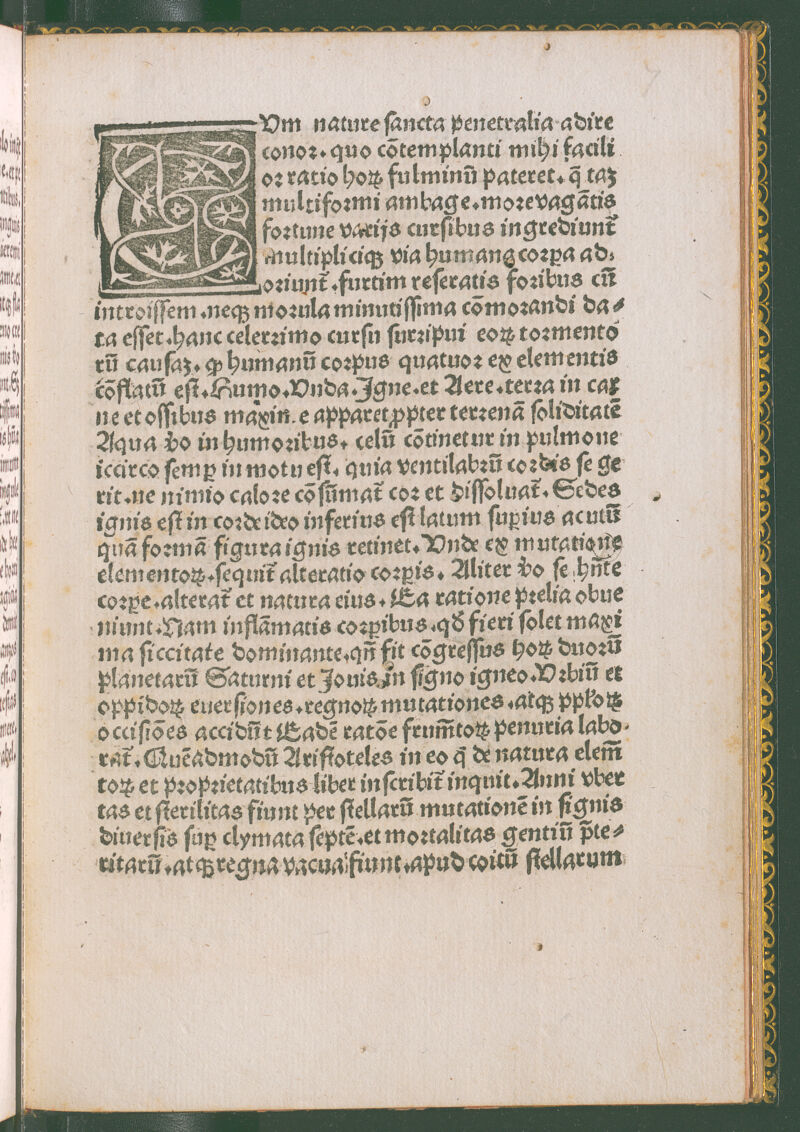 CVm nature sancta penetralia adire
conoꝛ. quo cõtemplanti mihi facili
oꝛ ratio hoꝝ fulminũ pateret. q̃ taꝫ
multifoꝛmi ambage. moꝛevagãtis
foꝛtune varijs cursibus ingrediunt̃
multipliciqꝫ via humanę coꝛꝑa ad,
oꝛiunt̃. furtim reseratis foꝛibus cũ
introissem. neqꝫ moꝛula minutissima cõmoꝛandi da⸗
ta esset. hanc celerꝛimo cursu surꝛipui eoꝝ toꝛmento
rũ causaꝫ. ꝙ humanũ coꝛpus quatuoꝛ ex elementis
cõflatũ est. Humo. Vnda. Igne. et Aere. terꝛa in car
ne et ossibus maxin.e apparet ꝓpter terꝛenã soliditatẽ
Aqua v̓o in humoꝛibus. celũ cõtinetur in pulmone
iccirco semꝑ in motu est. quia ventilabꝛũ coꝛdis se ge
rit. ne nimio caloꝛe cõsũmat̃ coꝛ et dissoluat̃. Sedes
ignis est in coꝛde ideo inferius est latum suꝑius acutũ
quã foꝛmã figura ignis retinet. Vnde ex mutatione
elementoꝝ. sequit̃ alteratio coꝛꝑis. Aliter v̓o se hñte
coꝛꝑe. alterat̃ et natura eius. Ea ratione pꝛelia obue
niunt. Nam inflãmatis coꝛꝑibus. qð fieri solet maxi
ma siccitate dominante. qñ fit cõgressus hoꝝ duoꝛũ
planetarũ Saturni et Jouis in signo igneo. Vꝛbiũ et
oppidoꝝ euersiones. regnoꝝ mutationes. atqꝫ ppl̓oꝝ
occisiões accidũt Eadẽ ratõe frum̃toꝝ penuria labo
rat̃. Quẽadmodũ Aristoteles in eo q̃ de natura elem̃
toꝝ et pꝛopꝛietatibus liber inscribit̃ inquit. Anni vber
tas et sterilitas fiunt per stellarũ mutationẽ in signis
diuersis suꝑ clymata septẽ. et moꝛtalitas gentiũ p̃te⸗
ritarũ. atqꝫ regna vacua fiunt. apud coitũ stellarum